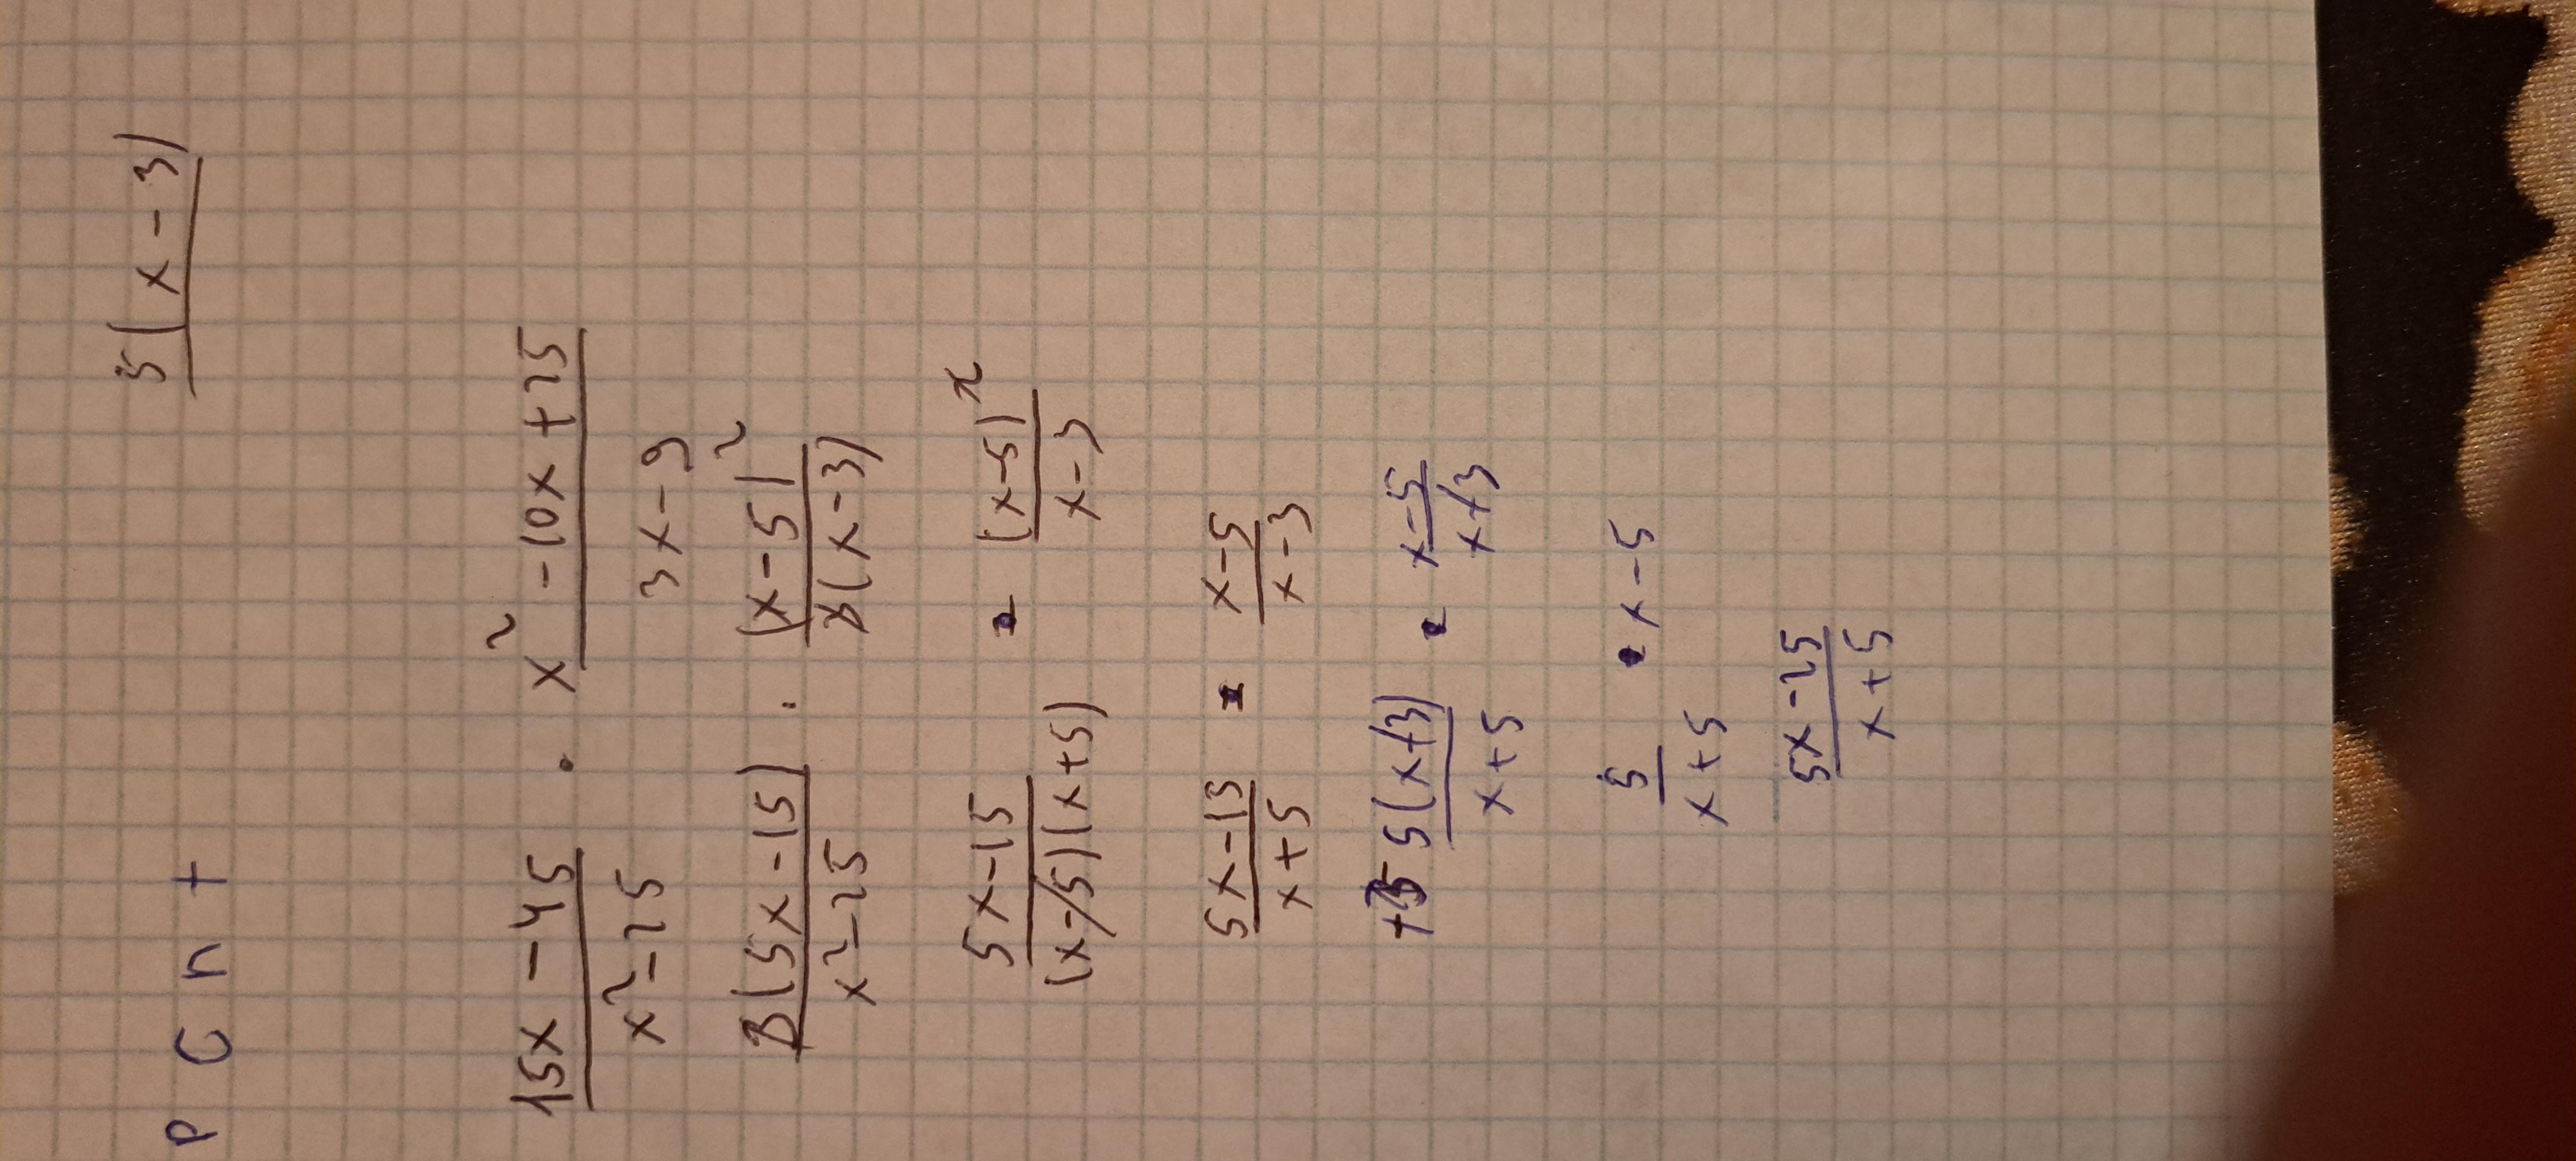 P C n t
5(x-3)
(15x-45)/(x²-25) · (x²-10x+25)/(3x-9)
3(5x-15)/(x²-25) · (x-5)²/(3(x-3))
(5x-15)/((x-5)(x+5)) · (x-5)²/(x-3)
(5x-15)/(x+5) · (x-5)/(x-3)
5(x+3)/(x+5) · (x-5)/(x+3)
5/(x+5) · x-5
(5x-25)/(x+5)